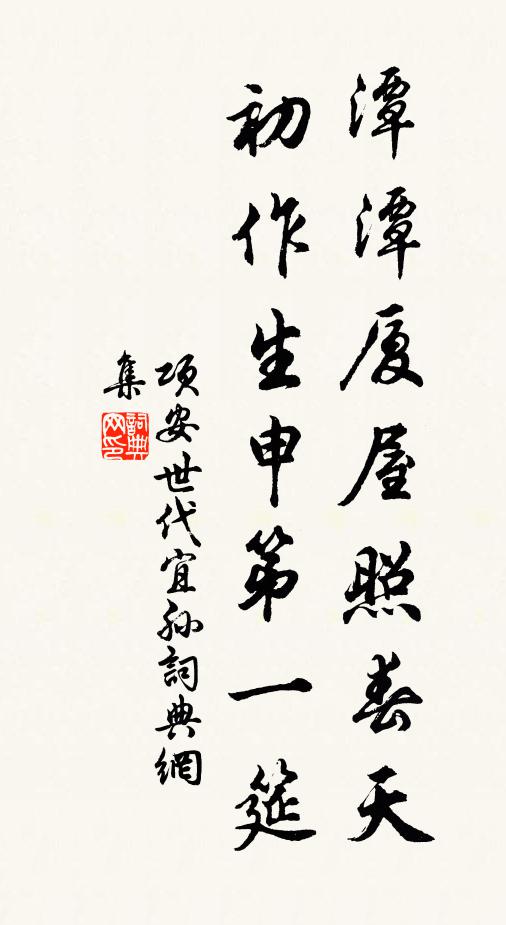 潭潭厦屋照春天
初作生申第一筵
項安世代宜孙詞典網
集
詞典网印